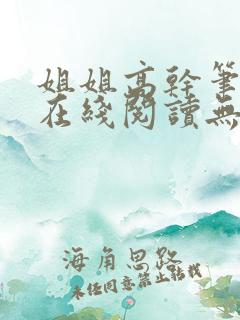 姐姐高幹筆
在綫閱讀無
海角思路
未经同意禁止转载